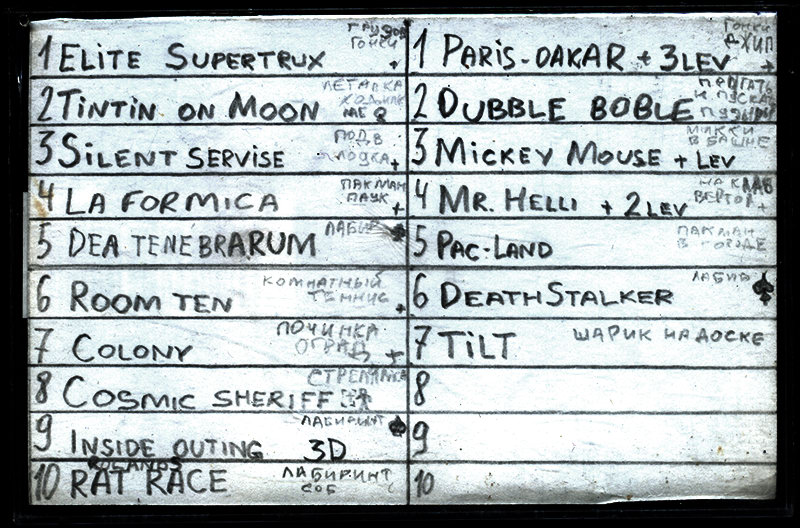 1 ELITE SUPERTRUX ГОНКИ +
2 TINTIN ON MOON ЛЕТАЛКА
3 SILENT SERVISE ПОДВ ЛОДКА +
4 LA FORMICA ПАКМАН ПАУК +
5 DEA TENEBRARUM ЛАБИР
6 ROOM TEN КОМНАТНЫЙ ТЕННИС +
7 COLONY ПОЧИНКА ОГРАД +
8 COSMIC SHERIFF СТРЕЛЯЛКА
9 INSIDE OUTING 3D ЛАБИРИНТ ♠
ROLANDS
10 RAT RACE ЛАБИРИНТ СОБ
1 PARIS-DAKAR + 3 LEV ГОНКИ ДЖИП +
2 DUBBLE BOBLE ПРЫГАТЬ И ПУСКАТ ПУЗЫРИ
3 MICKEY MOUSE + LEV МИККИ В БАШНЕ
4 MR. HELLI + 2 LEV ВЕРТОЛ +
5 PAC-LAND ПАКМАН В ГОРОДЕ
6 DEATHSTALKER ЛАБИР ♠
7 TILT ШАРИК НА ДОСКЕ
8
9
10